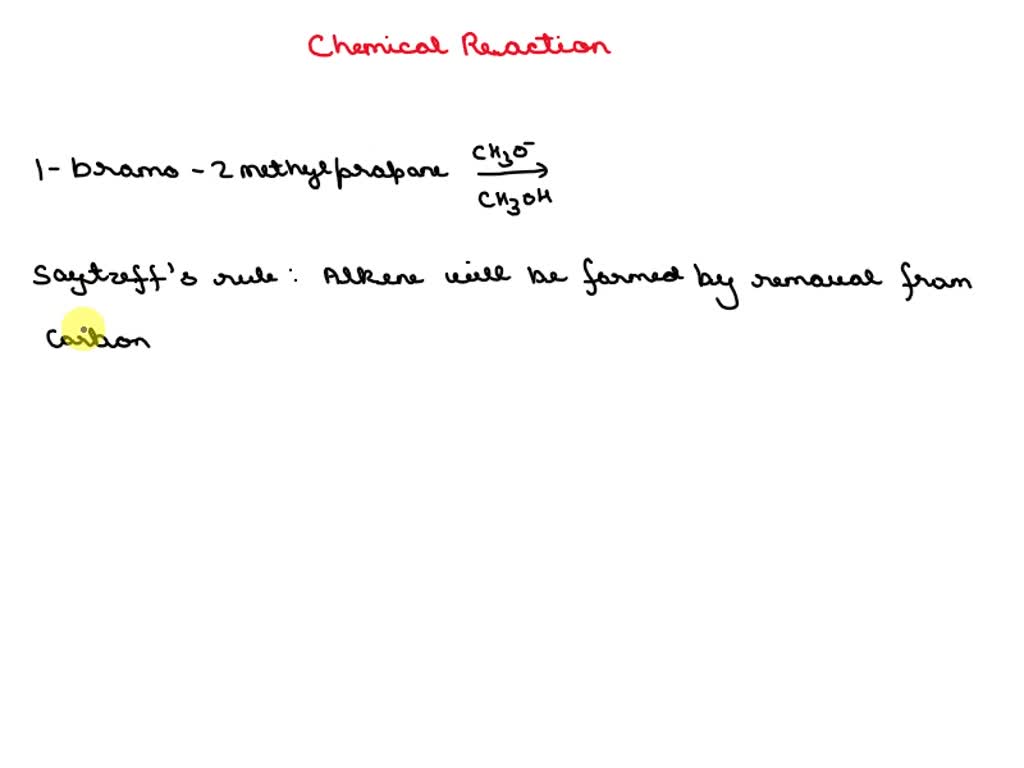 Chemical Reaction
1- bramo - 2 methylpropane CH3O⁻ → CH3OH
Saytzeff's rule : Alkene will be formed by removal from
carbon